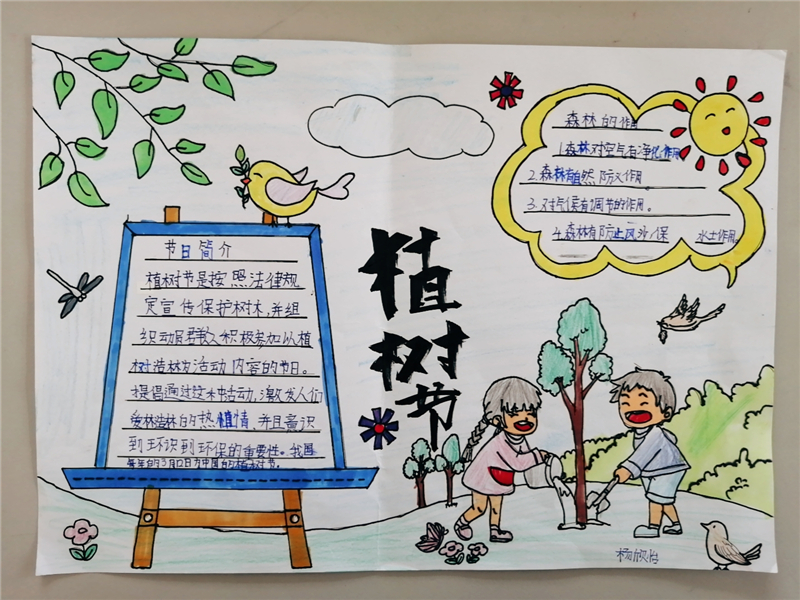 植树节
节日简介
植树节是按照法律规
定宣传保护树木,并组
织动员群众积极参加以植
树造林为活动内容的节日。
提倡通过这种活动,激发人们
爱林造林的热植情,并且意识
到环识到环保的重要性。我国
每年的3月12日为中国的植树节。
森林的作用
1.森林对空气有净化作用
2.森林有自然防火作用
3.对气侯有调节的作用。
4.森林有防止风沙保 水土作用。